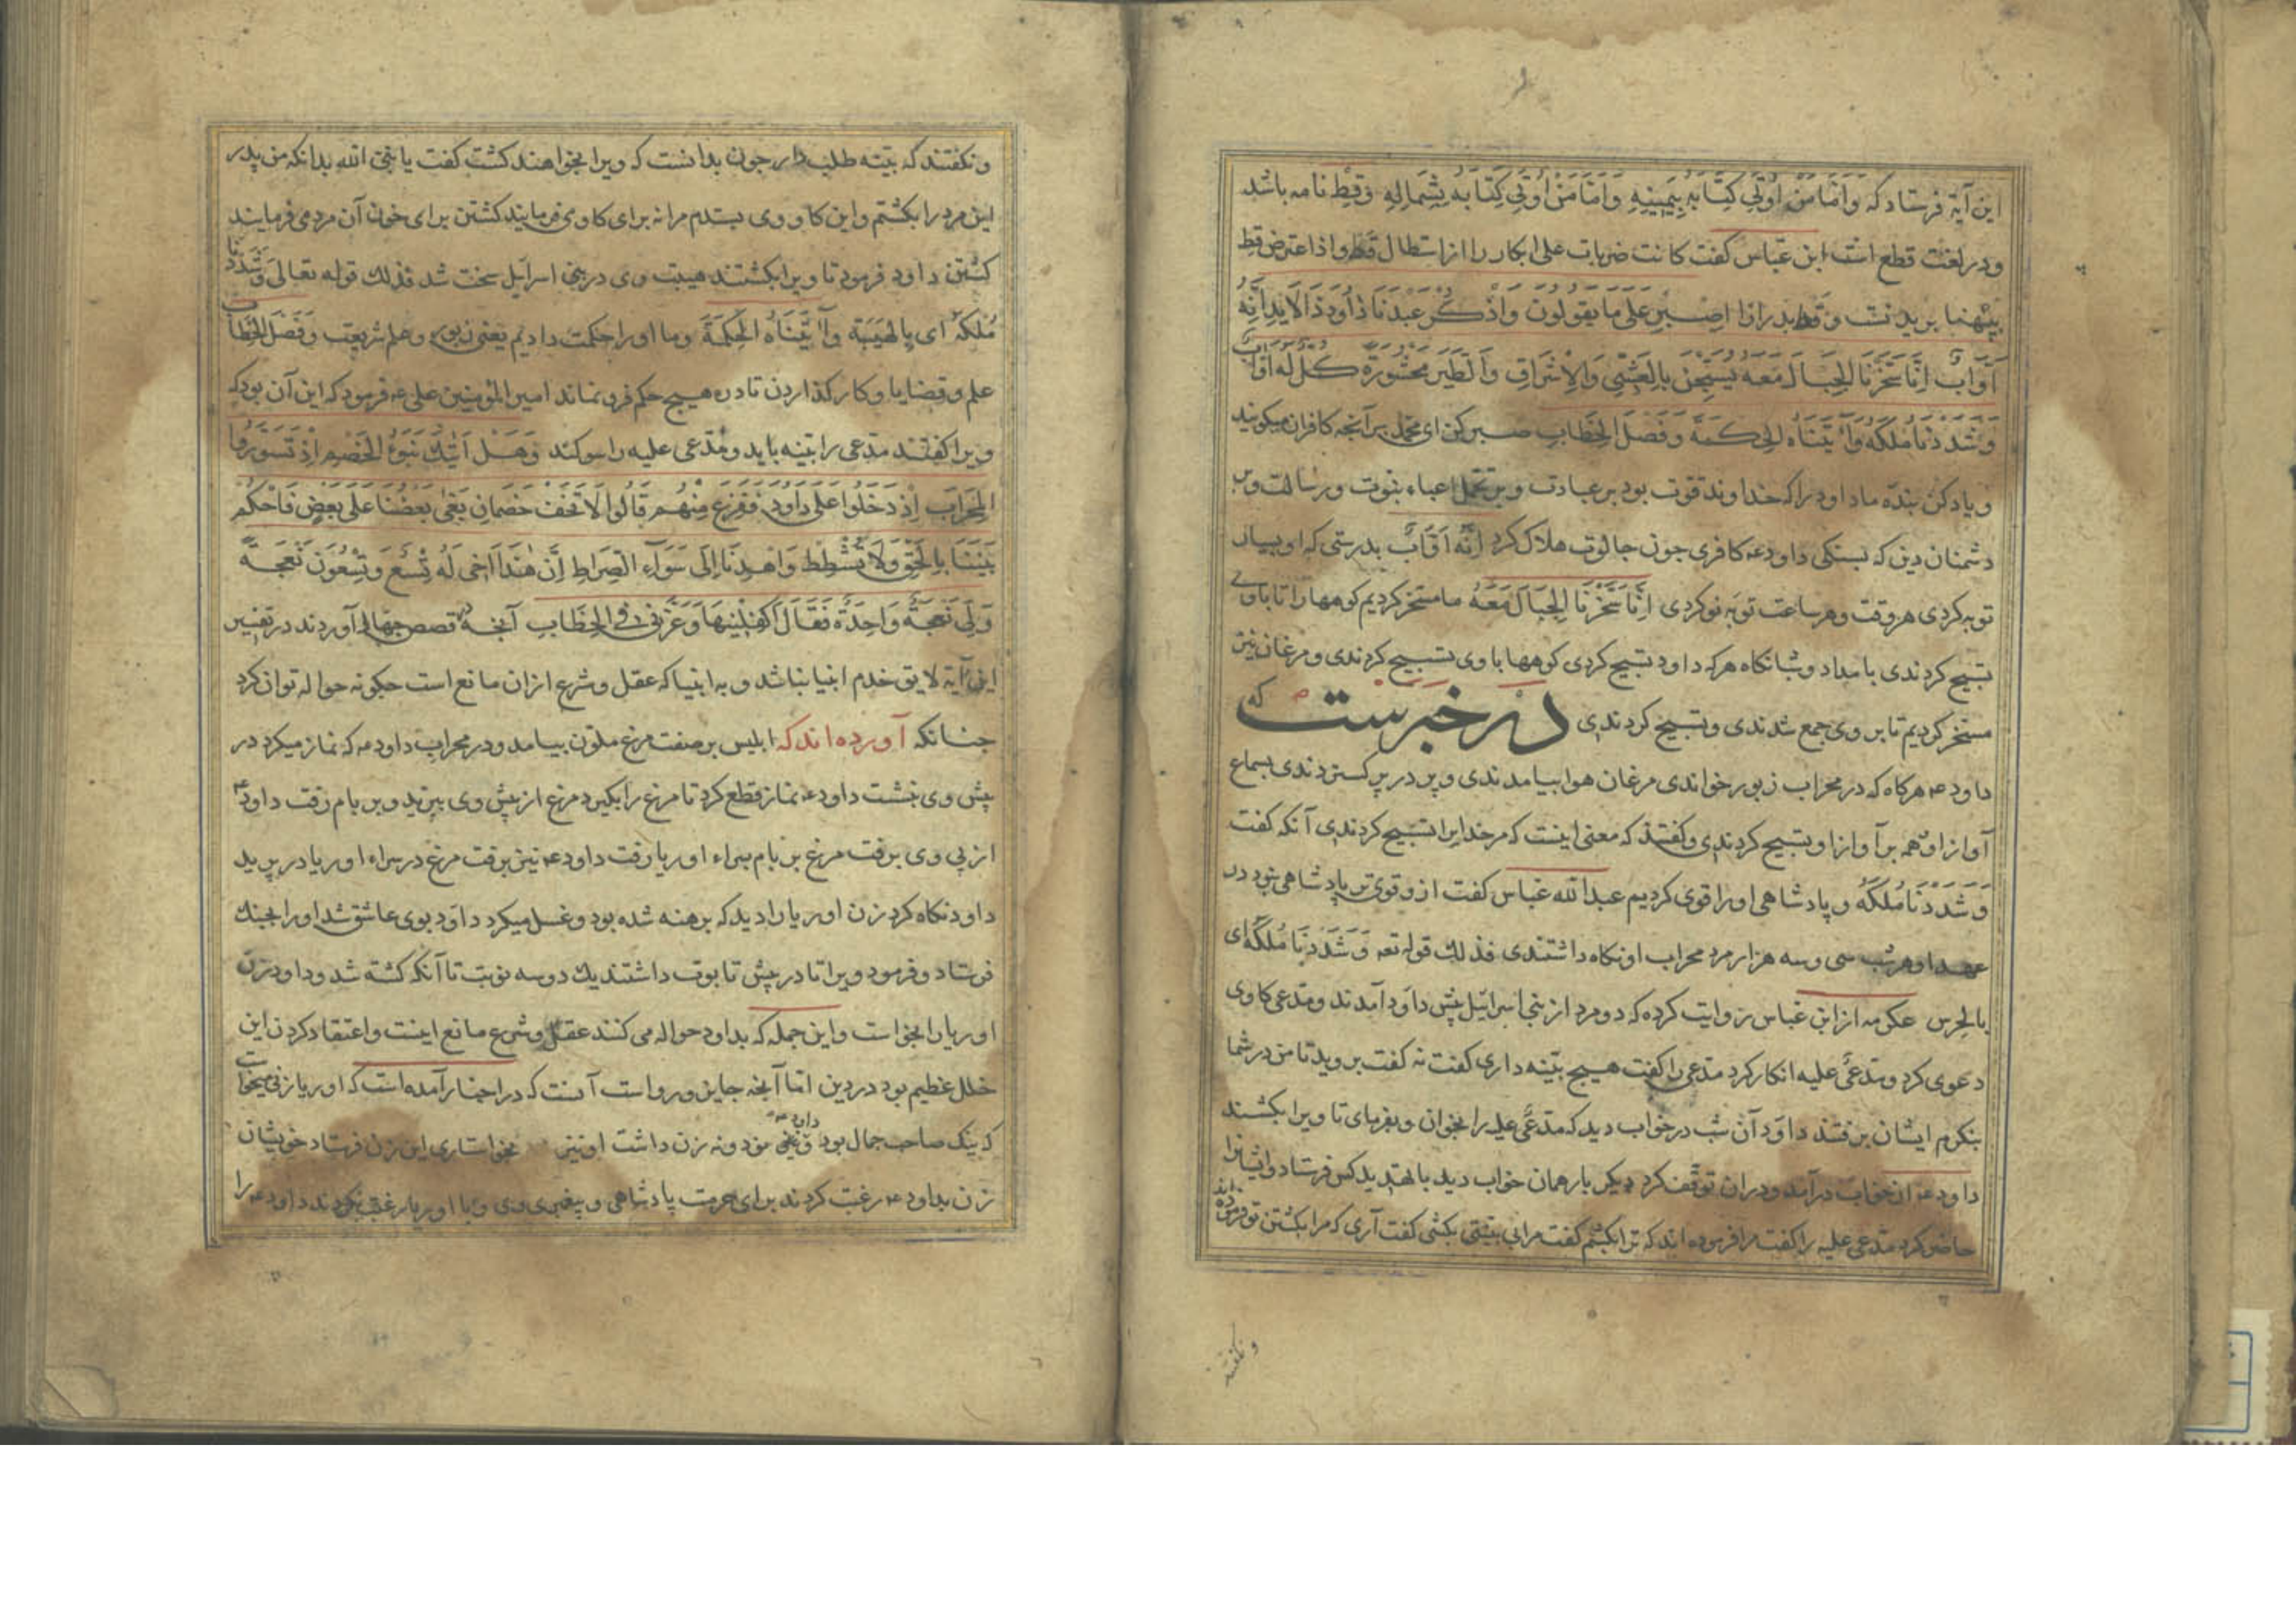 این آیة فرستاد که وَاَمَّا مَنْ اُوتِیَ كِتَابَهُ بِیَمِینِهِ وَاَمَّا مَنْ اُوتِیَ كِتَابَهُ بِشِمَالِهِ وقط نامه باشد
ودر لغت قطع است ابن عباس كفت كانت ضربات علی ابكار را از استطال قط واذا اعترض قط
اِصْبِرْ عَلَی مَا یَقُولُونَ وَاذْكُرْ عَبْدَنَا دَاوُدَ ذَا الْاَیْدِ اِنَّهُ
اَوَّابٌ اِنَّا سَخَّرْنَا الْجِبَالَ مَعَهُ یُسَبِّحْنَ بِالْعَشِیِّ وَالْاِشْرَاقِ وَالطَّیْرَ مَحْشُورَةً كُلٌّ لَهُ اَوَّابٌ
وَشَدَدْنَا مُلْكَهُ وَآتَیْنَاهُ الْحِكْمَةَ وَفَصْلَ الْخِطَابِ صبر كن ای محمد بر آنچه كافران میكویند
ویاد كن بنده ما داود را كه خداوند قوت بود بر عبادت وبر تحمل اعباء نبوت ورسالت وبر
دشمنان دین كه بسنكی داود عه كافری جون جالوت هلاك كرد اِنَّهُ اَوَّابٌ بدرستی كه او بسیار
توبه كردی هر وقت وهر ساعت توبه نو كردی اِنَّا سَخَّرْنَا الْجِبَالَ مَعَهُ ما مسخر كردیم كوهها را تا با وی
تسبیح كردندی بامداد وشبانكاه هركه داود تسبیح كردی كوهها با وی تسبیح كردندی ومرغان نیز
مسخر كردیم تا بر وی جمع شدندی وتسبیح كردندی در خبرست كه
داود عه هركاه كه در محراب زبور خواندی مرغان هوا بیامدندی وپر در پر كستردندی بسماع
آواز او همه بر آواز او تسبیح كردندی وكفتند كه معنی اینست كه مر خدایرا تسبیح كردندی آنكه كفت
وَشَدَدْنَا مُلْكَهُ وپادشاهی او را قوی كردیم عبدالله عباس كفت از و قوی تر پادشاهی نبود در
عهد او هر شب سی وسه هزار مرد محراب او نكاه داشتندی فذلك قوله تعه وَشَدَدْنَا مُلْكَهُ ای
بالحرس عكرمه از ابن عباس روایت كرده كه دو مرد از بنی اسرائیل پیش داود آمدند ومدعی كاوی
دعوی كرد ومدعی علیه انكار كرد مدعی را كفت هیچ بینه داری كفت نه كفت بروید تا من در شما
بنكرم ایشان برفتند داود آن شب در خواب دید كه مدعی علیه را بخوان وبفرمای تا ویرا بكشند
داود عه از خواب درآمد ودران توقف كرد دیكر بار همان خواب دید بالتهدید كس فرستاد وایشانرا
حاضر كرد مدعی علیه را كفت مرا فرموده اند كه ترا بكشم كفت مرا بی بینتی بكشی كفت آری كه مرا بكشتن تو فرموده اند
ونكفتند
ونكفتند كه بینه طلب دار جون بدانست كه ویرا بخواهند كشت كفت یا نبی الله بدانكه من پدر
این مرد را بكشتم واین كاو وی بستدم مرا نه برای كاو می فرمایند كشتن برای خون آن مرد می فرمایند
كشتن داود فرمود تا ویرا بكشتند هیبت وی در بنی اسرائیل سخت شد فذلك قوله تعالی وَشَدَدْنَا
مُلْكَهُ ای بِالْهَیْبَةِ وَآتَیْنَاهُ الْحِكْمَةَ وما او را حكمت دادیم یعنی زبور وعلم شریعت وَفَصْلَ الْخِطَابِ
علم وقضایا وكار كذاردن تا در هیچ حكم فرو نماند امیرالمؤمنین علی عه فرمود كه این آن بود كه
ویرا كفتند مدعی را بینه باید ومدعی علیه را سوكند وَهَلْ اَتَیكَ نَبَؤُ الْخَصْمِ اِذْ تَسَوَّرُوا
الْمِحْرَابَ اِذْ دَخَلُوا عَلَی دَاوُدَ فَفَزِعَ مِنْهُمْ قَالُوا لَا تَخَفْ خَصْمَانِ بَغَی بَعْضُنَا عَلَی بَعْضٍ فَاحْكُمْ
بَیْنَنَا بِالْحَقِّ وَلَا تُشْطِطْ وَاهْدِنَا اِلَی سَوَآءِ الصِّرَاطِ اِنَّ هَذَا اَخِی لَهُ تِسْعٌ وَتِسْعُونَ نَعْجَةً
وَلِیَ نَعْجَةٌ وَاحِدَةٌ فَقَالَ اَكْفِلْنِیهَا وَعَزَّنِی فِی الْخِطَابِ آنچه قصص جهال آوردند در تفسیر
این آیة لایق خدم انبیا نباشد وبه انبیا كه عقل وشرع ازان مانع است جكونه حواله توان كرد
جنانكه آورده اند كه ابلیس بر صفت مرغ ملون بیامد ودر محراب داود عه كه نماز میكرد در
پیش وی نشست داود عه نماز قطع كرد تا مرغ را بكیرد مرغ از پیش وی بپرید وبر بام رفت داود عه
از پی وی برفت مرغ بر بام سراء اوریا رفت داود عه نیز برفت مرغ در سراء اوریا در پرید
داود نكاه كرد زن اوریا را دید كه برهنه شده بود وغسل میكرد داود بوی عاشق شد او را بجنك
فرستاد وفرمود ویرا تا در پیش تابوت داشتند یك دو سه نوبت تا آنكه كشته شد وداود زن
اوریا را بخواست واین جمله كه بداود حواله می كنند عقل وشرع مانع اینست واعتقاد كردن این
خلل عظیم بود در دین اما آنچه جایز ورواست آنست كه در اخبار آمده است كه اوریا زنی میخواست
كه نیك صاحب جمال بود داود عه نود ونه زن داشت او نیز بخواستاری این زن فرستاد خویشان
زن بداود عه رغبت كردند برای حرمت پادشاهی وپیغمبری وی وبا اوریا رغبت نكردند داود عه را